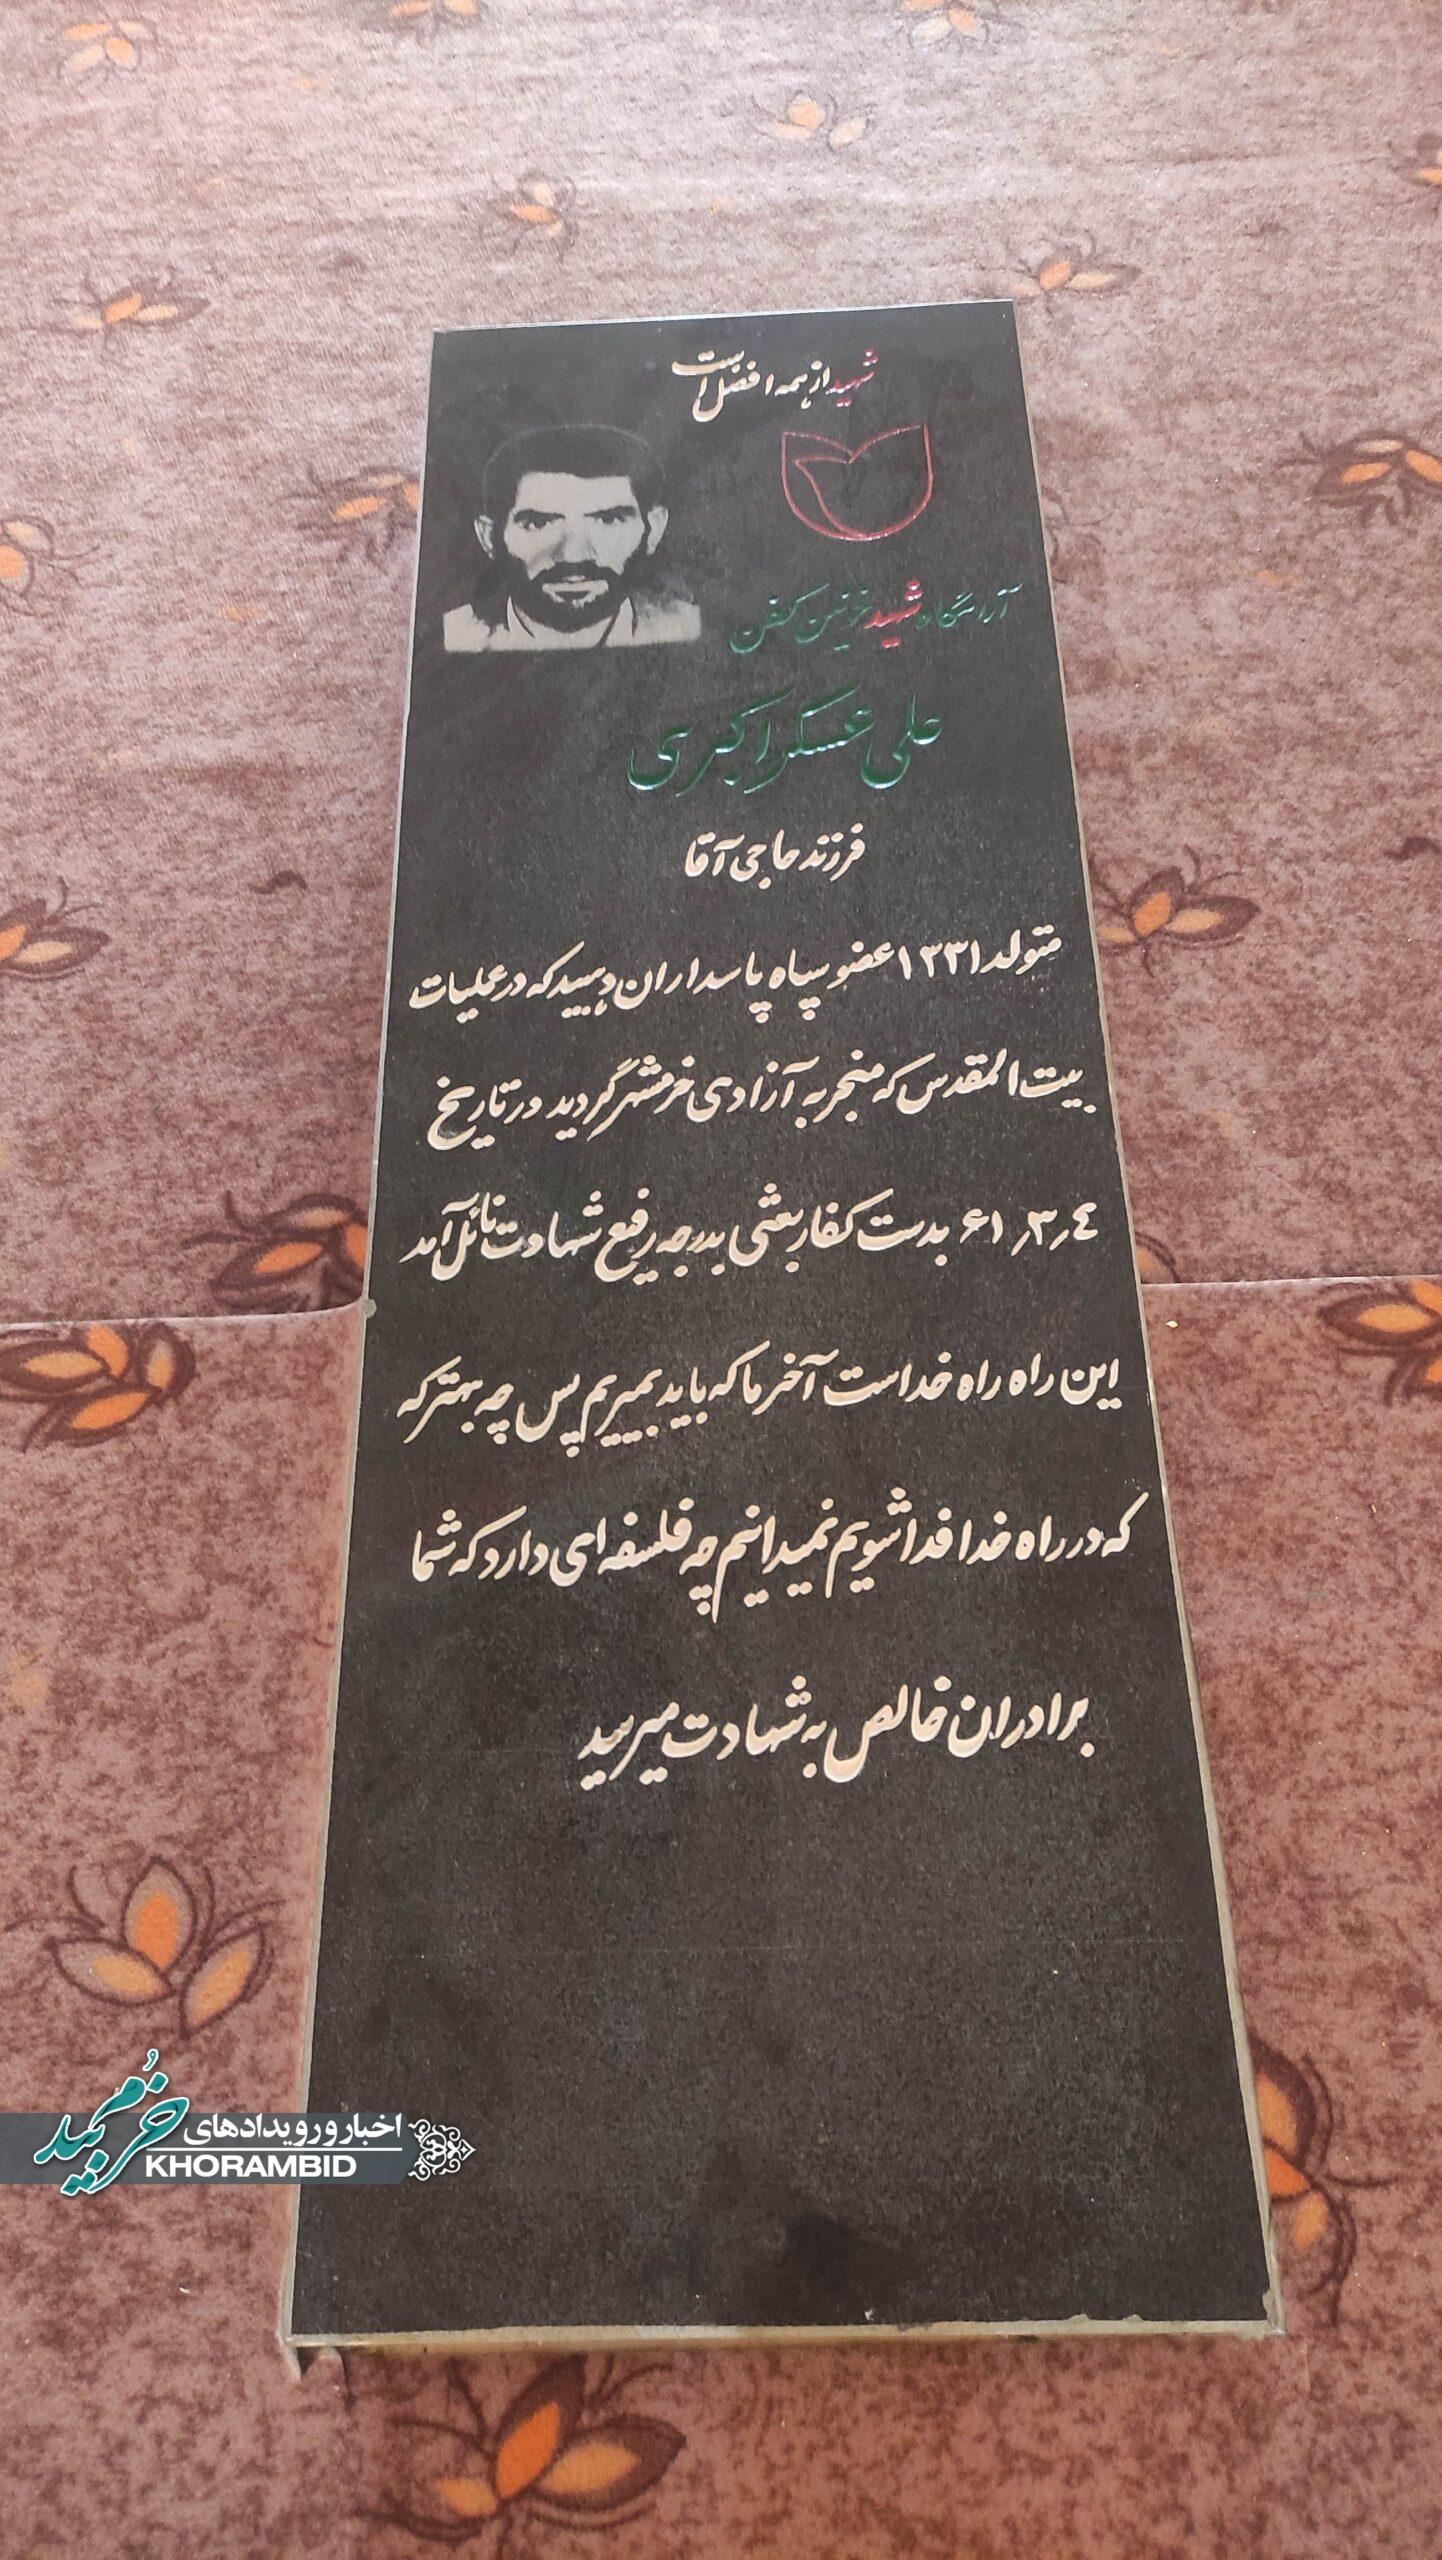 شهید از همه افضل است
آرامگاه شهید خونین کفن
علی عسکر اکبری
فرزند حاجی آقا
متولد ۱۳۳۱ عضو سپاه پاسداران دهبید که در عملیات
بیت المقدس که منجر به آزادی خرمشهر گردید در تاریخ
٤ر۳ر۶۱ بدست کفار بعثی بدرجه رفیع شهادت نائل آمد
این راه راه خداست آخر ما که باید بمیریم پس چه بهتر که
که در راه خدا فدا شویم نمیدانیم چه فلسفه ای دارد که شما
برادران خالص به شهادت میرسید
اخبار و رویدادهای خرمبید
KHORAMBID